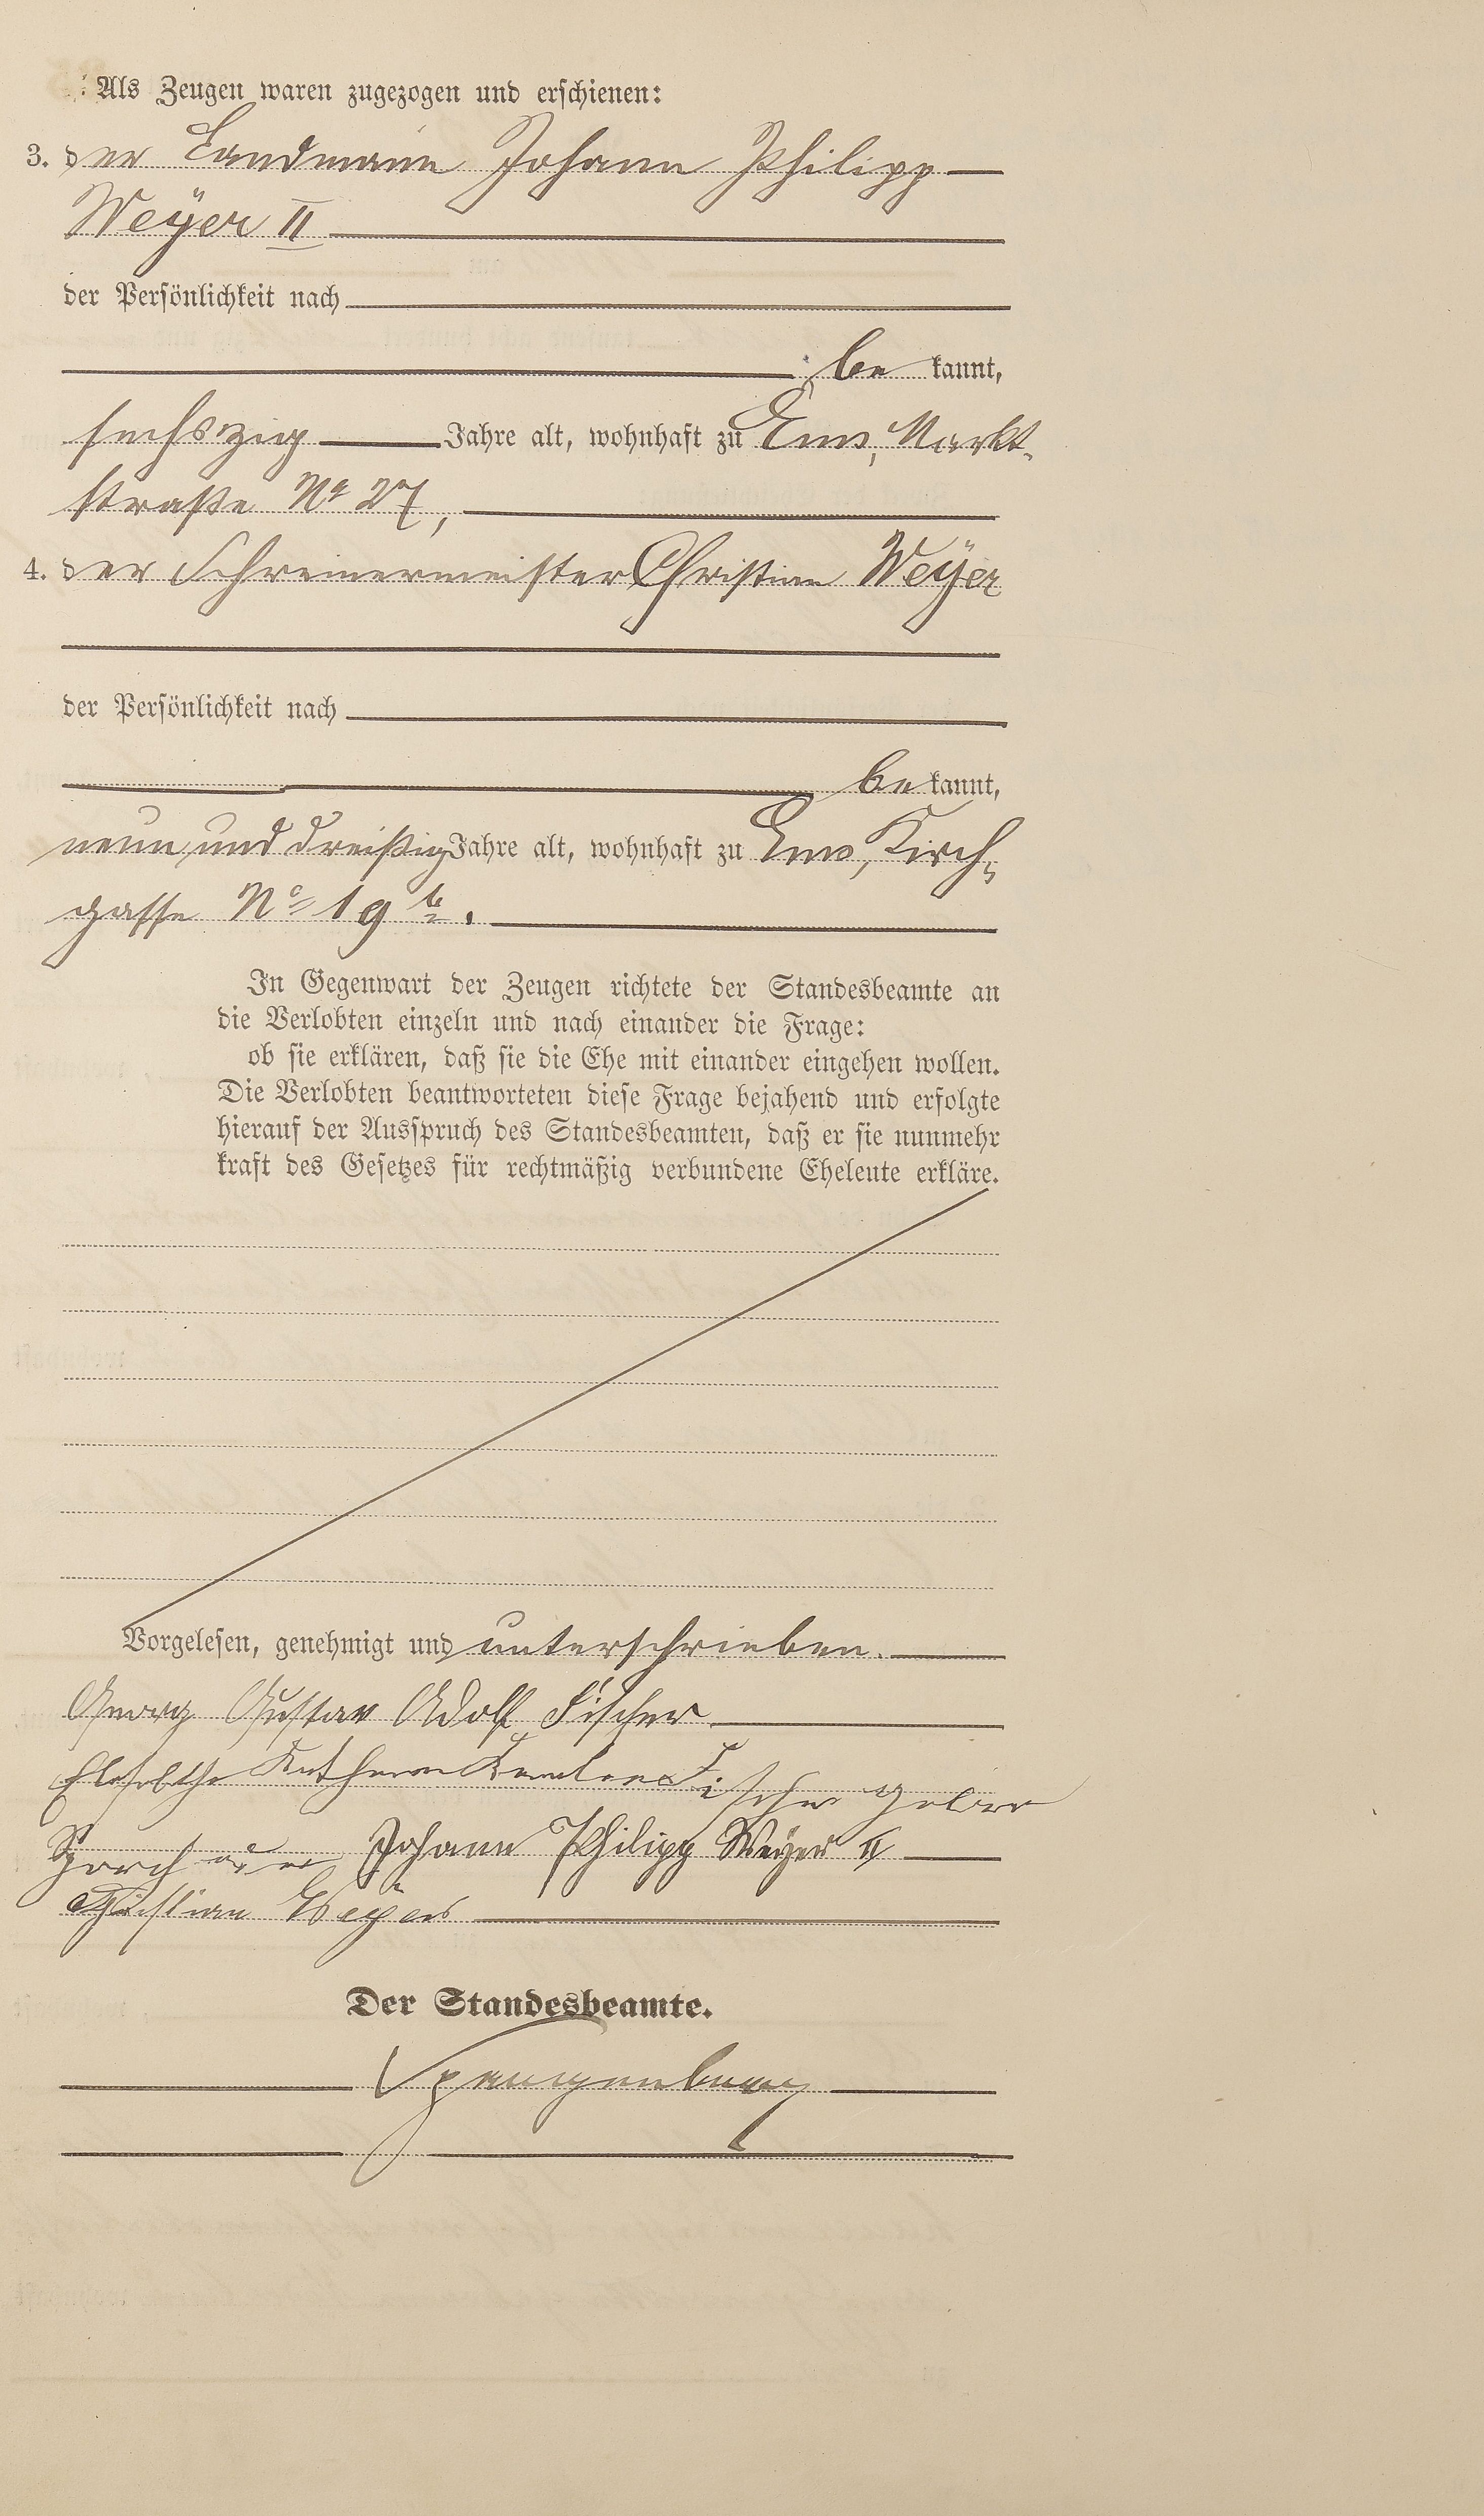 Als Zeugen waren zugezogen und erschienen:
3. der Landmann Johann Philipp
Weÿer II
der Persönlichkeit nach
be kannt,
sechszig Jahre alt, wohnhaft zu Ems, Markt-
straße No 27,
4. der Schreinermeister Christian Weÿer
der Persönlichkeit nach
be kannt,
neun und dreißig Jahre alt, wohnhaft zu Ems, Kirch-
gasse No 19 b.
In Gegenwart der Zeugen richtete der Standesbeamte an
die Verlobten einzeln und nach einander die Frage:
ob sie erklären, daß sie die Ehe mit einander eingehen wollen.
Die Verlobten beantworteten diese Frage bejahend und erfolgte
hierauf der Ausspruch des Standesbeamten, daß er sie nunmehr
kraft des Gesetzes für rechtmäßig verbundene Eheleute erkläre.
Vorgelesen, genehmigt und unterschrieben.
Georg Gustav Adolf Fischer
Fischer
Johann Philipp Weÿer II
Christian Weÿer
Der Standesbeamte.
Spangenberg